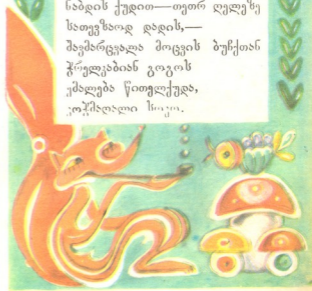 ნაბდის ქუდით—თეთრ ღელეზე
სათევზაოდ დადის,—
მაყვალა მოცვის ბუჩქთან
ჭრელკაბიან გოგოს
ემალება წითელქუდა,
კოჭმაღალი სოკო.